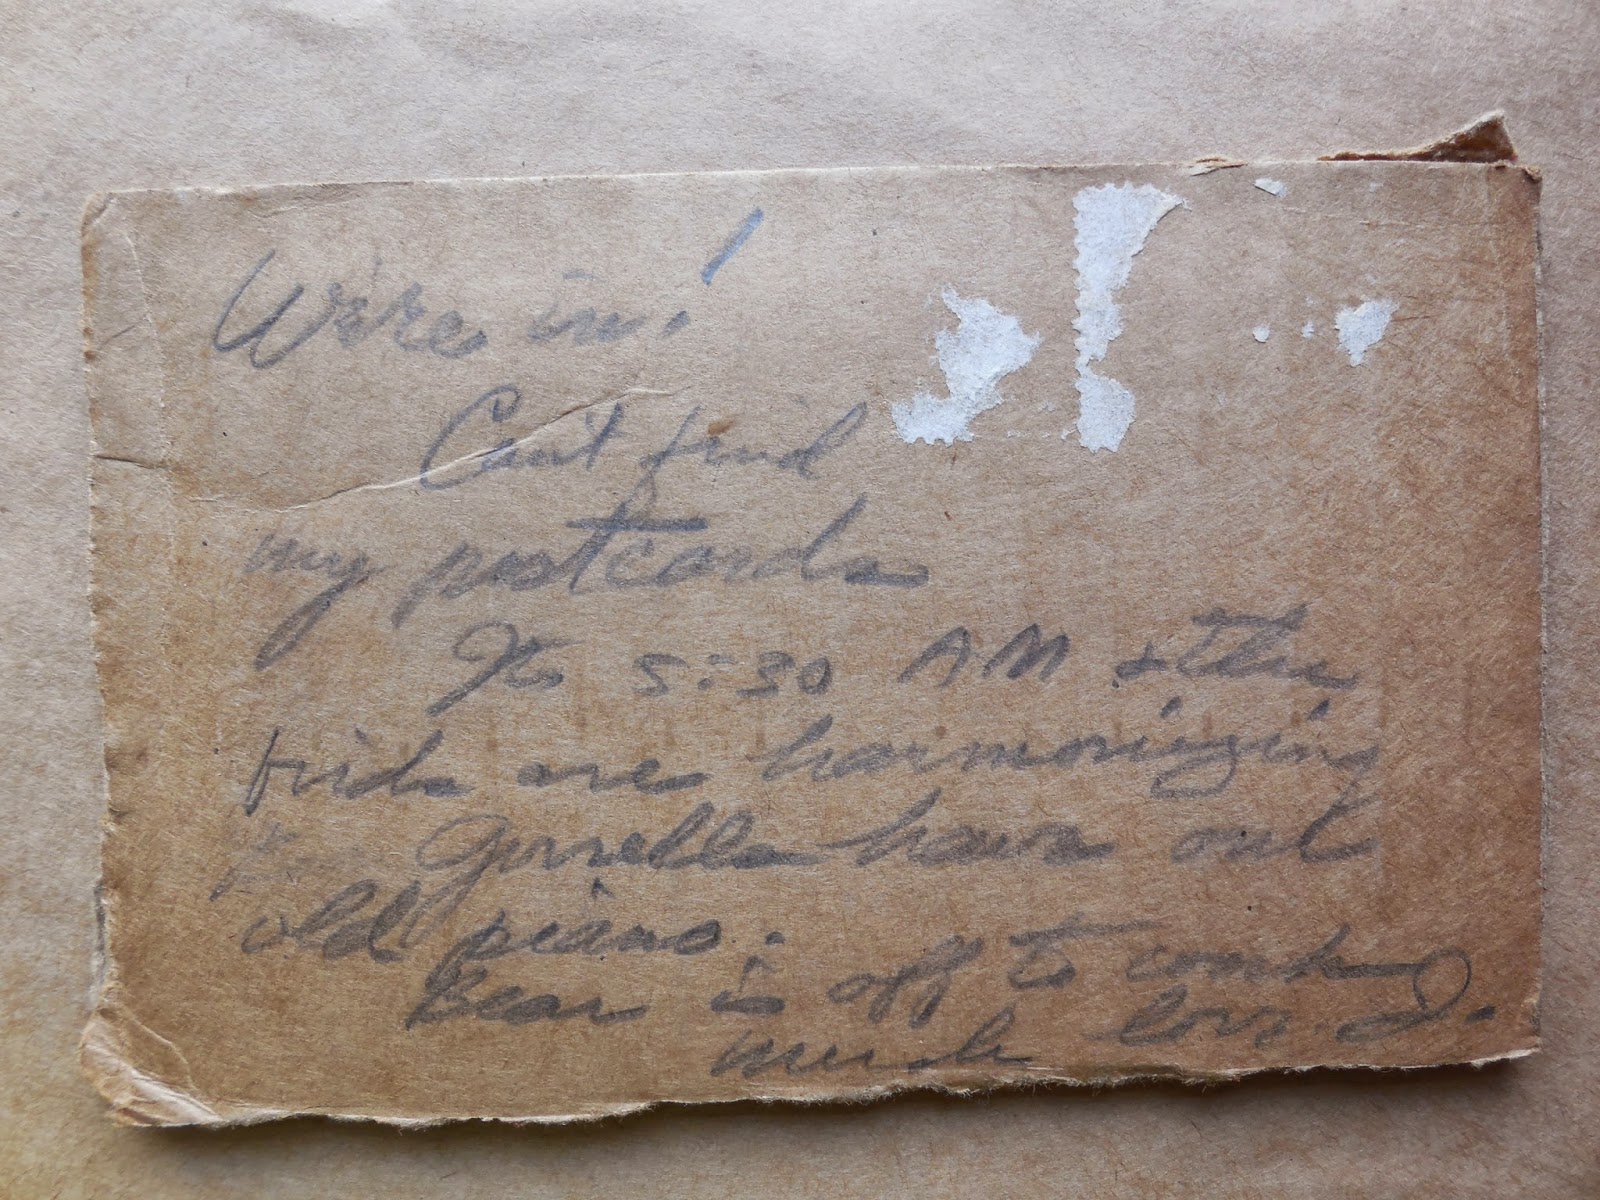 We're in!
Can't find
my postcards
Its 5:30 AM & the
birds are harmonizing
Gorrells have out
old piano.
Bear is off to comb
much love. J.